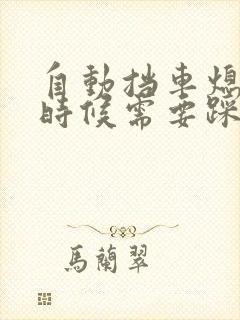 自動挡車熄
時候需要踩
馬蘭翠